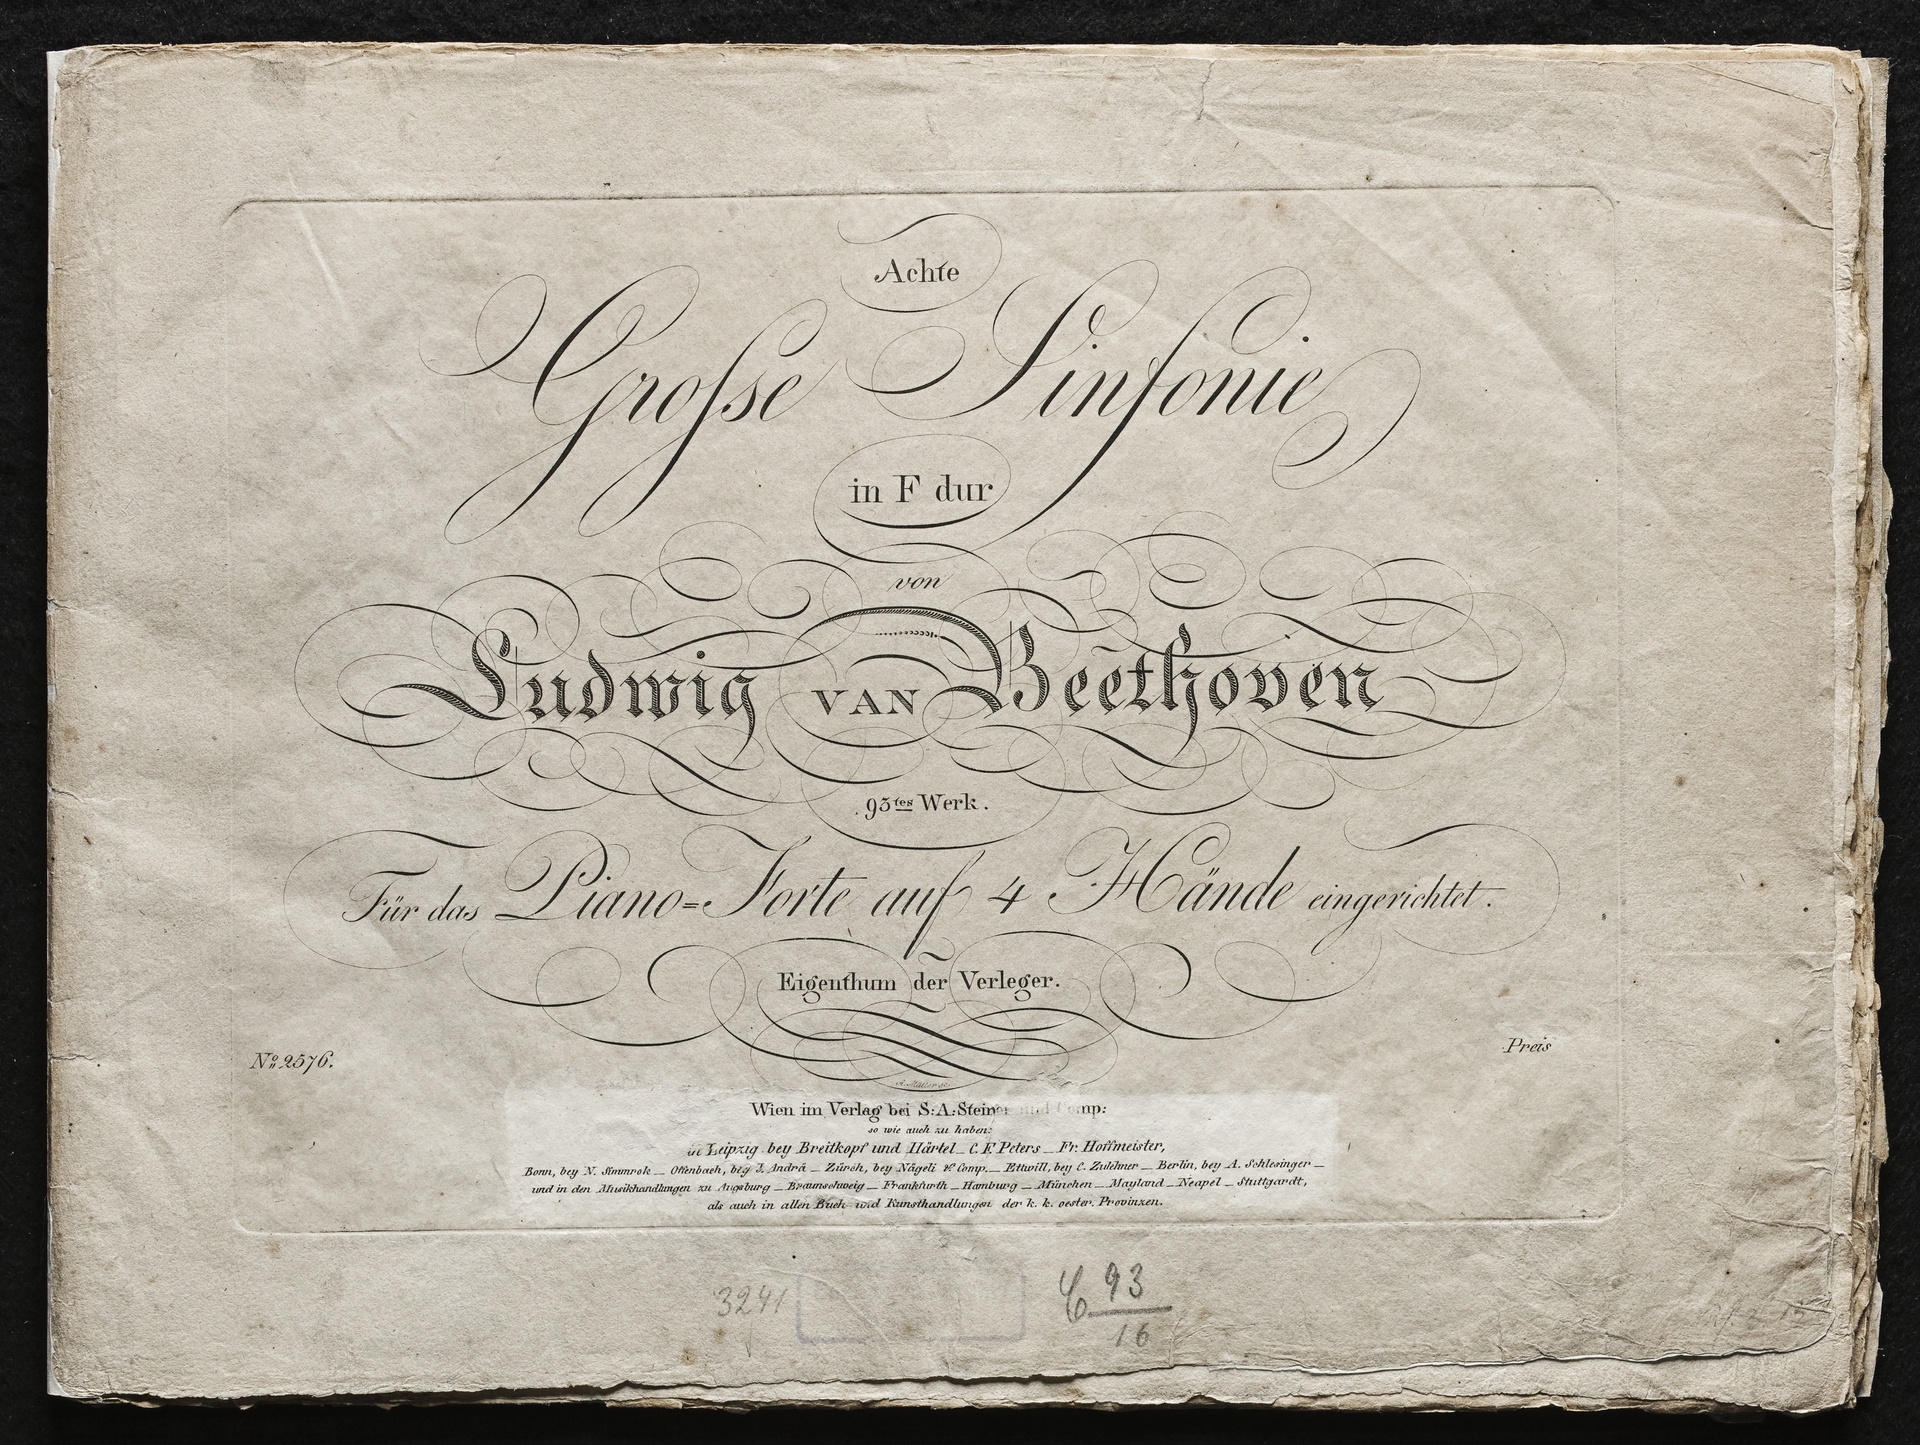 Achte
Grosse Sinfonie
in F dur
von
Ludwig VAN Beethoven
93tes Werk.
Für das Piano=Forte auf 4 Hände eingerichtet.
Eigenthum der Verleger.
No. 2576.
Preis
A. Müller sc.
Wien im Verlag bei S: A: Steiner und Comp:
so wie auch zu haben:
in Leipzig bey Breitkopf und Härtel _ C. F. Peters _ Fr. Hoffmeister,
Bonn, bey N. Simmrok _ Offenbach, bey J. André _ Zürch, bey Nägeli & Comp. _ Ettwill, bey C. Zulehner _ Berlin, bey A. Schlesinger _
und in den Musikhandlungen zu Augsburg _ Braunschweig _ Frankfurth _ Hamburg _ München _ Mayland _ Neapel _ Stuttgardt,
als auch in allen Buch- und Kunsthandlungen der k. k. oester. Provinzen.
3241
C 93
16